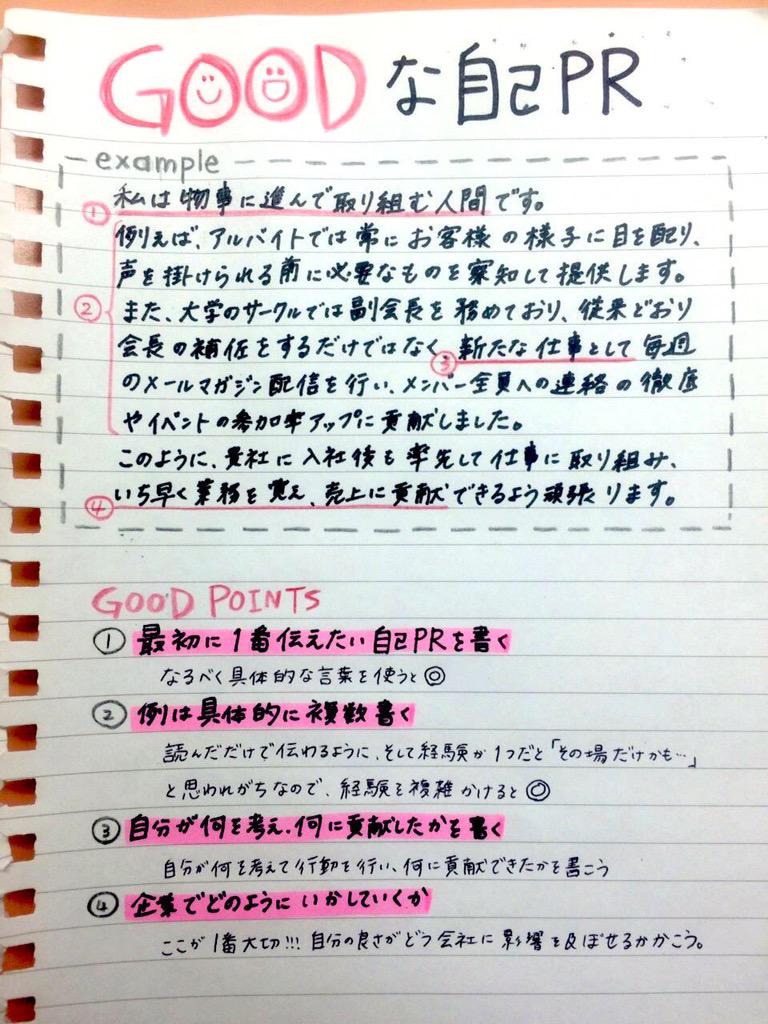 GOODな自己PR
example
① 私は物事に進んで取り組む人間です。
例えば、アルバイトでは常にお客様の様子に目を配り、
声を掛けられる前に必要なものを察知して提供します。
② また、大学のサークルでは副会長を務めており、従来どおり
会長の補佐をするだけではなく、③新たな仕事として毎週
のメールマガジン配信を行い、メンバー全員への連絡の徹底
やイベントの参加率アップに貢献しました。
このように、貴社に入社後も率先して仕事に取り組み、
④ いち早く業務を覚え、売上に貢献できるよう頑張ります。
GOOD POINTS
① 最初に1番伝えたい自己PRを書く
なるべく具体的な言葉を使うと◎
② 例は具体的に複数書く
読んだだけで伝わるように、そして経験が1つだと「その場だけかも…」
と思われがちなので、経験を複雑かけると◎
③ 自分が何を考え、何に貢献したかを書く
自分が何を考えて行動を行い、何に貢献できたかを書こう
④ 企業でどのようにいかしていくか
ここが1番大切!!! 自分の良さがどう会社に影響を及ぼせるかかこう。